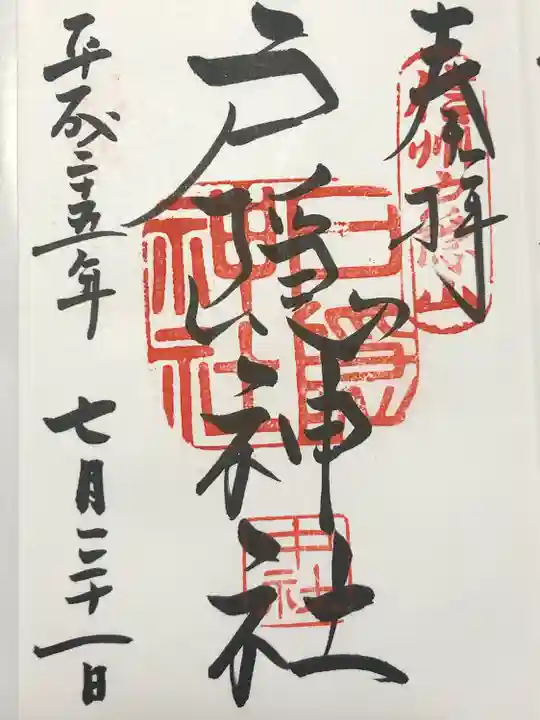 奉拝
戸隠神社
平成二十五年 七月二十一日
戸隠神社
中社